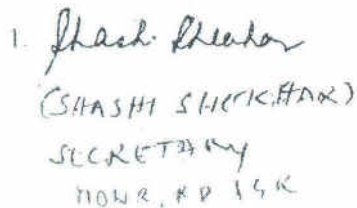 1. Shashi Shekhar
(SHASHI SHEKHAR)
SECRETARY
MOWR, RD & GR